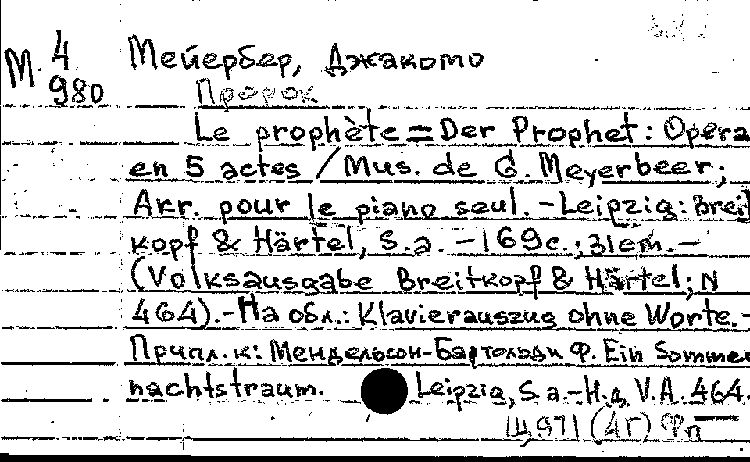 М 4 980
Мейербер, Джакомо
Пророк
Le prophète = Der Prophet: Opera
en 5 actes / Mus. de G. Meyerbeer;
Arr. pour le piano seul. - Leipzig: Breit
kopf & Härtel, S.a. - 169с.; 31см. -
(Volksausgabe Breitkopf & Härtel; N
464). - На обл.: Klavierauszug ohne Worte. -
Припл. к: Мендельсон-Бартольди Ф. Ein Sommer
nachtstraum. Leipzig, S.a. - Н.д. V.A. 464.
Щ971(4Г) Фп